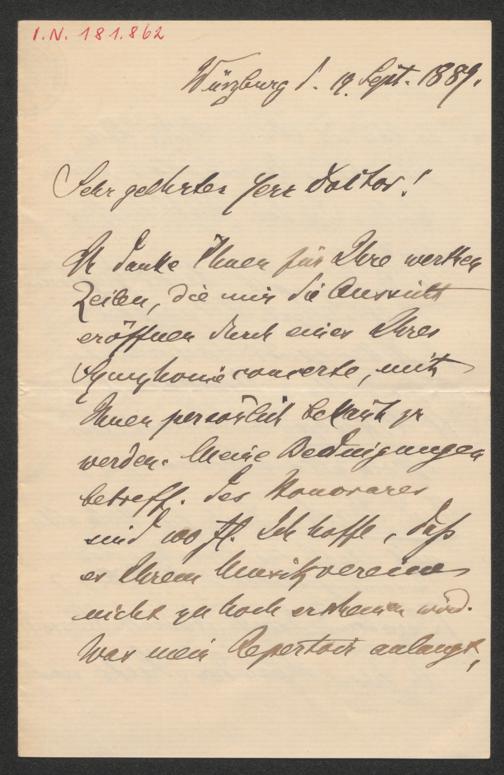 I.N. 181.862
Würzburg d. 19. Sept. 1889.
Sehr geehrter Herr Doktor!
Ich danke Ihnen für Ihre werthen
Zeilen, die mir die Aussicht
eröffnen durch eines Ihrer
Symphonieconcerte, mit
Ihnen persönlich bekannt zu
werden. Meine Bedingungen
betreff. des Honorares
sind 100 fl. Ich hoffe, daß
es Ihrem Musikvereine
nicht zu hoch erscheinen wird.
Was mein Repertoir anlangt,